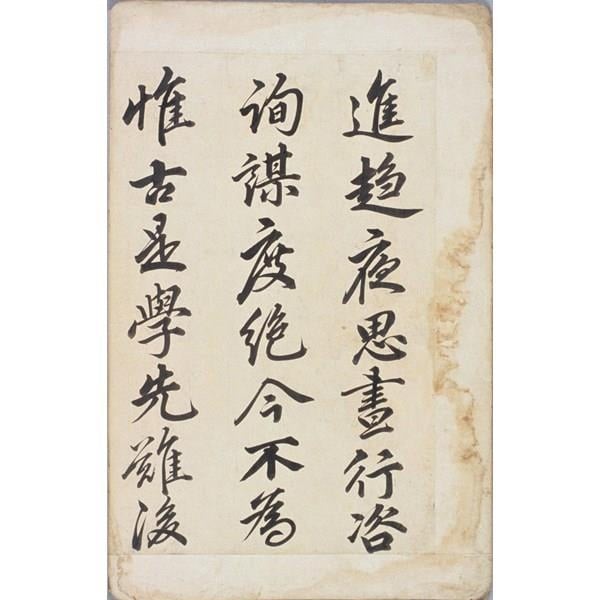 進趨夜思晝行咨
詢謀度絕今不為
惟古是學先難後